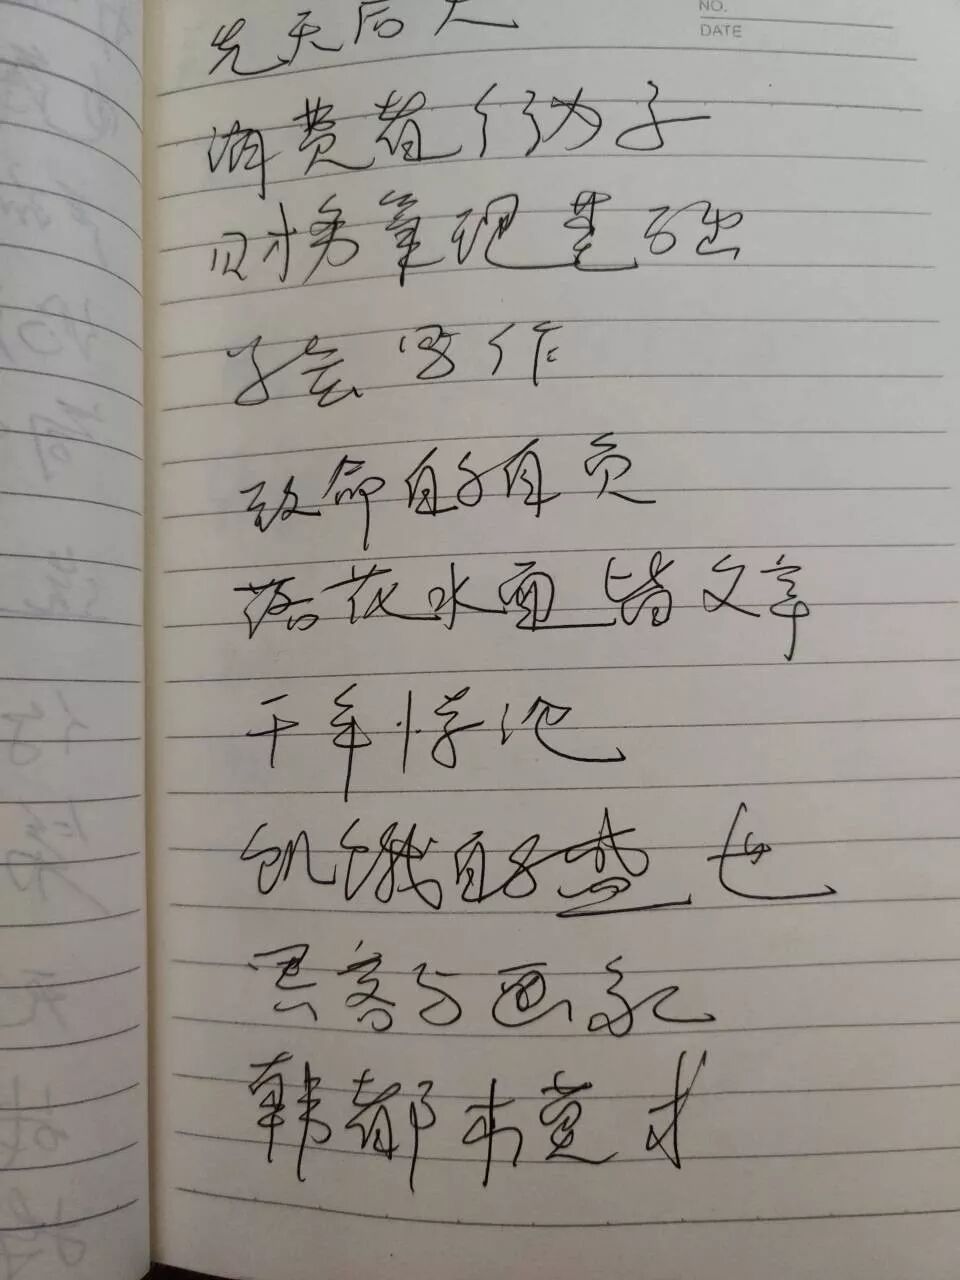 NO.
DATE
先天后天
消费者行为学
财务管理基础
学会写作
致命的自负
落花水面皆文章
千年悖论
饥饿的盛世
黑客与画家
韩都